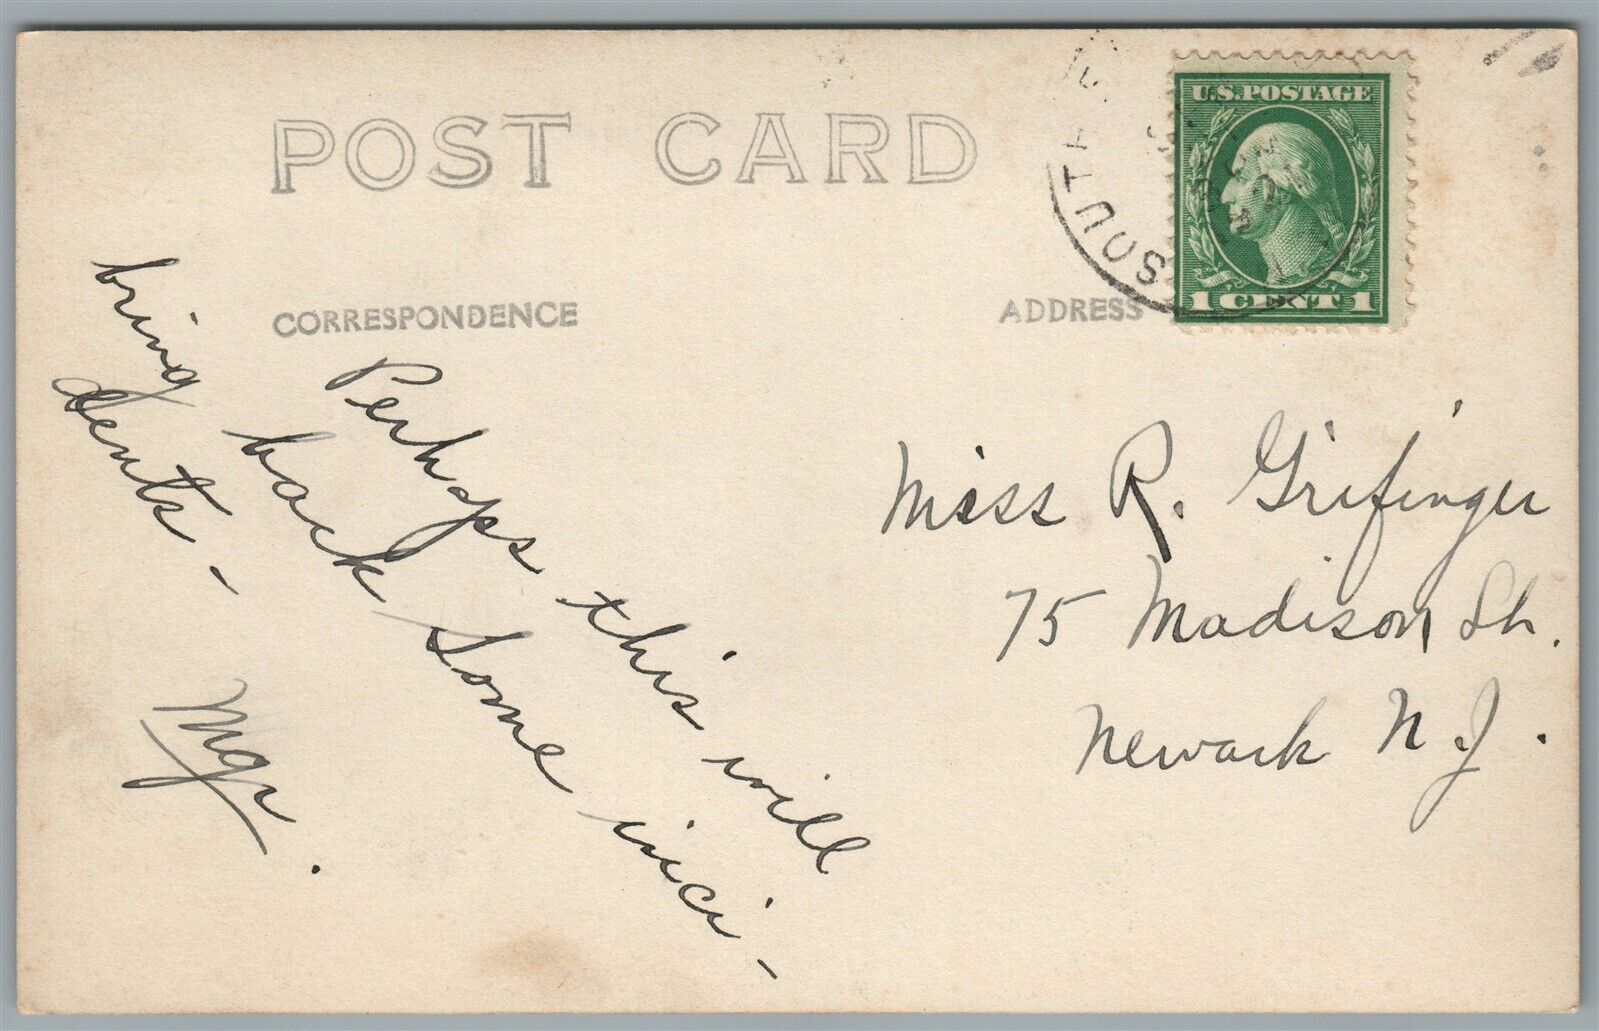 POST CARD
U.S. POSTAGE
1 CENT 1
SOUTH
CORRESPONDENCE
ADDRESS
Perhaps this will
bring back some inci-
dents -
Mgr.
Miss R. Grifinger
75 Madison St.
Newark N.J.